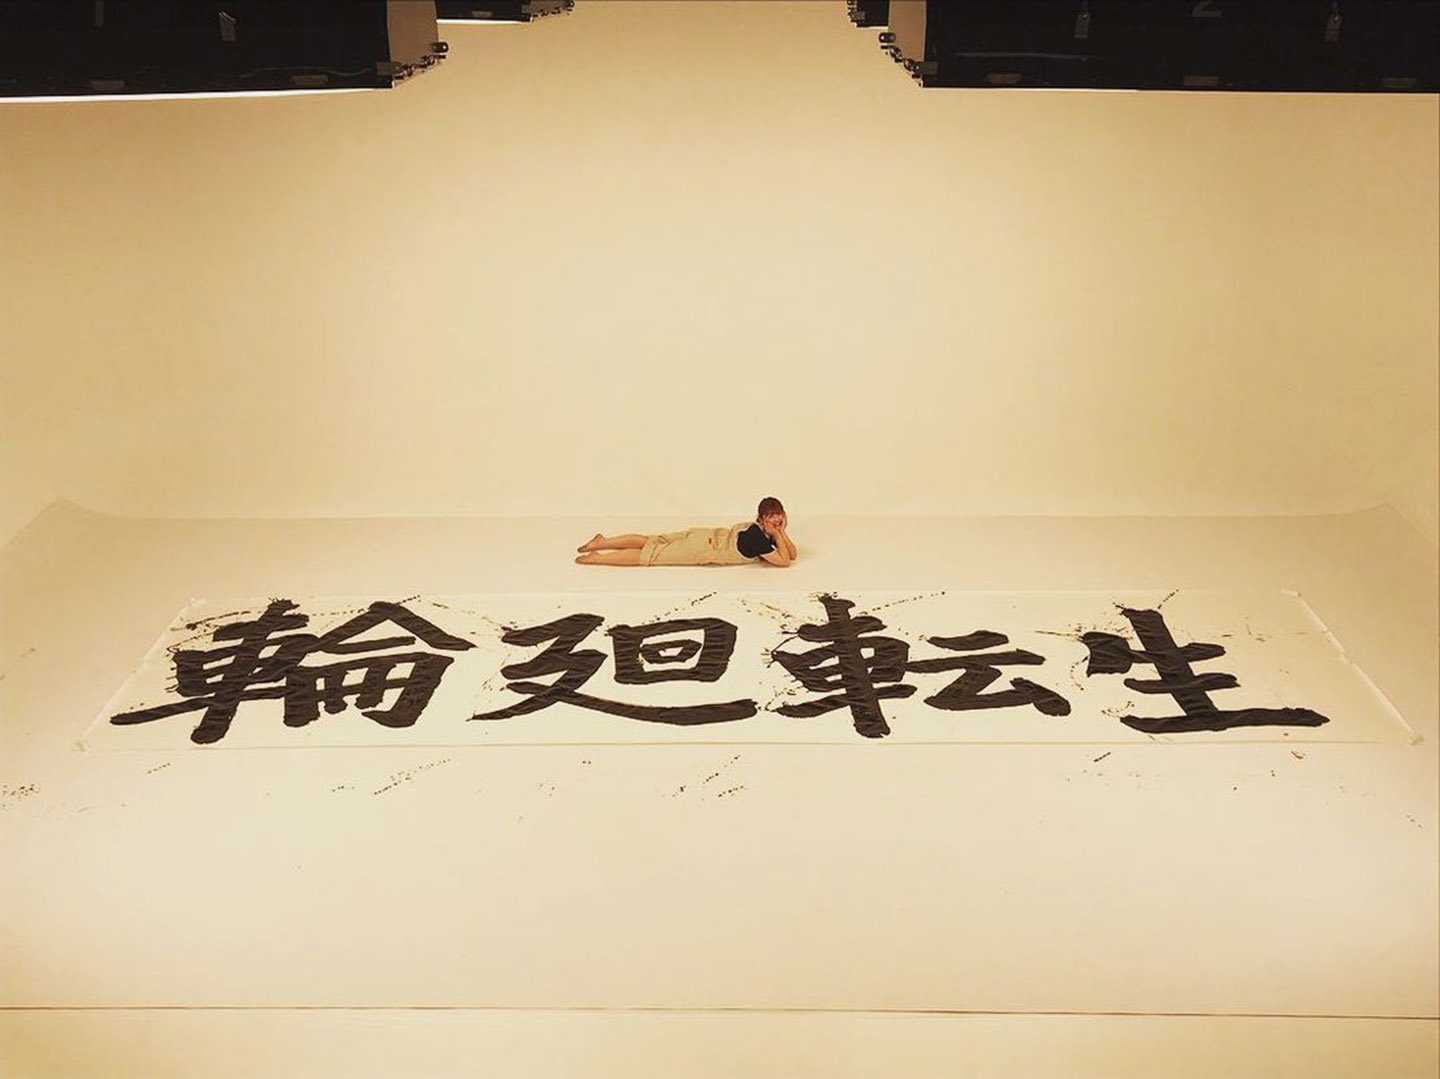 輪廻転生